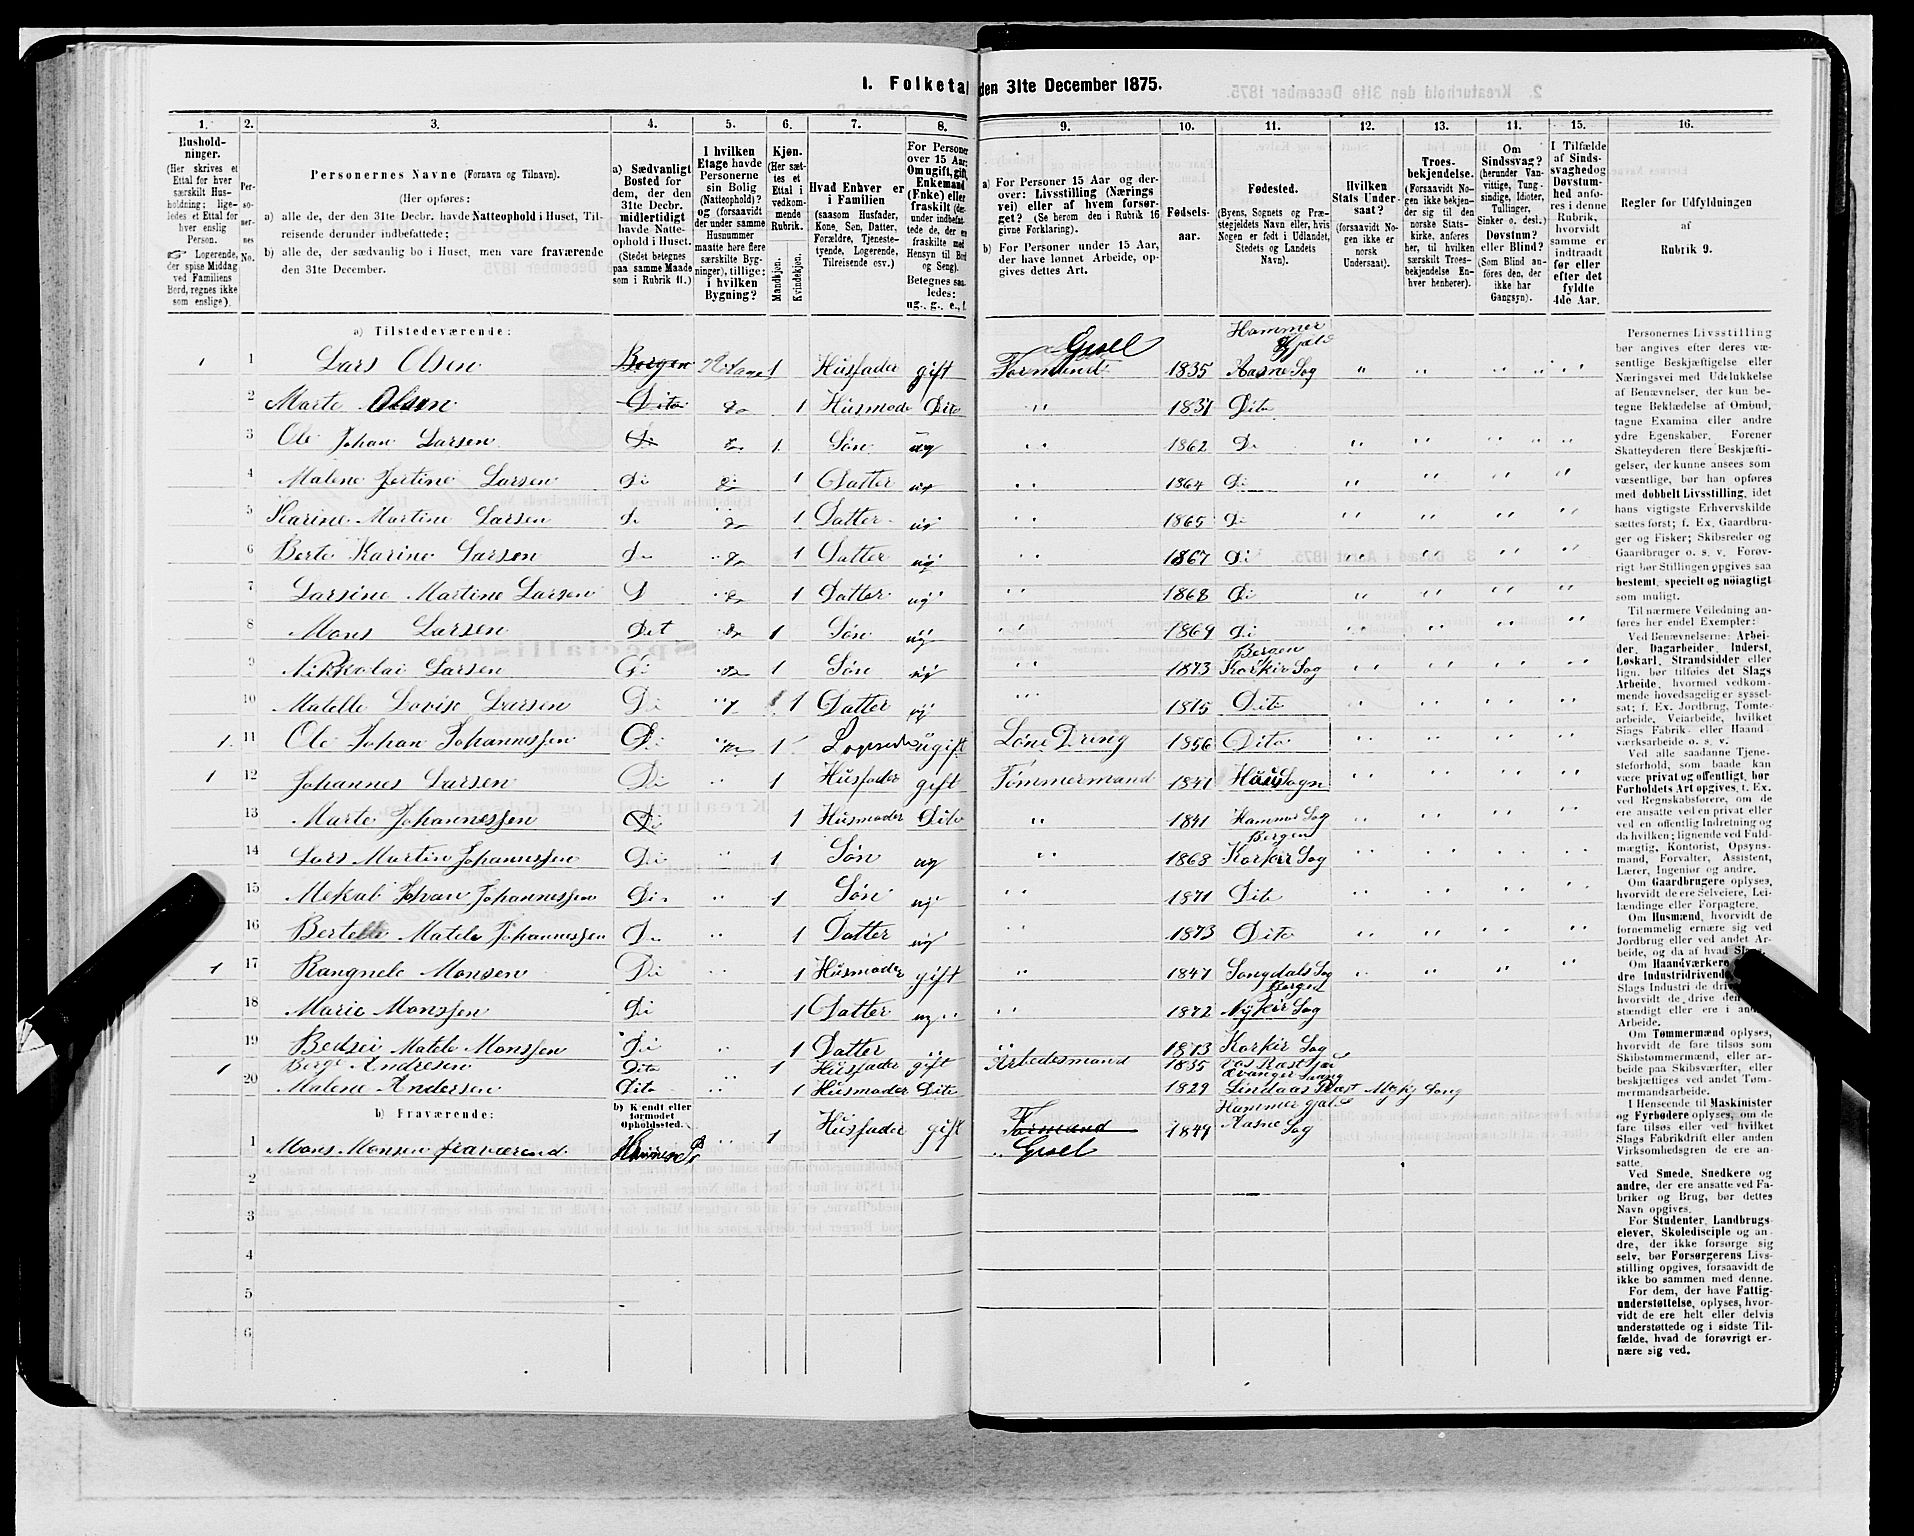 1. Folketal den 31te December 1875.
1. 2. 3. 4. 5. 6. 7. 8. 9. 10. 11. 12. 13. 14. 15. 16.
Husholdninger.
(Her skrives et Ettal for hver særskilt Husholdning; ligeledes et Ettal for hver enslig Person.
Logerende, der spise Middag ved Familiens Bord, regnes ikke som enslige).
Personernes No.
Personernes Navne (Fornavn og Tilnavn).
(Her opføres:
a) alle de, der den 31te Decbr. havde Natteophold i Huset, Tilreisende derunder indbefattede;
b) alle de, der sædvanlig bo i Huset, men vare fraværende den 31te December.
a) Sædvanligt Bosted for dem, der den 31te Decbr. midlertidigt havde Natteophold i Huset.
(Stedet betegnes paa samme Maade som i Rubrik 11.)
I hvilken Etage havde Personerne sin Bolig (Natteophold)? og (forsaavidt der under samme Husnummer maatte høre flere særskilte Bygninger), tillige: i hvilken Bygning?
Kjøn.
(Her sættes et Ettal i vedkommende Rubrik.
Mandkjøn. Kvindekjøn.
Hvad Enhver er i Familien
(saasom Husfader, Kone, Søn, Datter, Forældre, Tjenestetyende, Logerende, Tilreisende osv.)
For Personer over 15 Aar: Om ugift, gift, Enkemand (Enke) eller fraskilt
Betegnes saaledes:
ug., g., e., f.
a) For Personer 15 Aar og derover: Livsstilling (Næringsvei) eller af hvem forsørget? (Se herom den i Rubrik 16 givne Forklaring).
b) For Personer under 15 Aar, der have lønnet Arbeide, opgives dettes Art.
Fødselsaar.
Fødested.
(Byens, Sognets og Præstegjeldets Navn eller, hvis Nogen er født i Udlandet, Stedets og Landets Navn).
Hvilken Stats Undersaat?
(forsaavidt Nogen ikke er norsk Undersaat).
Troesbekjendelse.
(Forsaavidt Nogen ikke bekjender sig til den norske Statskirke, anføres her, til hvilken særskilt Troesbekjendelse Enhver henhører).
Om Sindssvag?
(herunder Vanvittige, Tungsindige, Idioter, Tullinger, Sinker o. desl.)
Døvstum? eller Blind?
(Som Blind anføres den, der ikke har Gangsyn).
I Tilfælde af Sindssvaghed og Døvstumhed anføres i denne Rubrik, hvorvidt samme er indtraadt før eller efter det fyldte 4de Aar.
Regler for Udfyldningen
af
Rubrik 9.
a) Tilstedeværende:
Hammer
Gjæl
1 1 Lars Olsen Bergen 1 Husfader gift Formand 1835 Aasne Sog
2 Marte Olsen Dito 1 Husmode Dito 1837 Dito
3 Ole Johan Larsen Di 1 Søn ug 1862 Di
4 Malene Jertine Larsen Di 1 Datter ug 1864 Di
5 Karine Martine Larsen Di 1 Datter ug 1865 Di
6 Berte Karine Larsen Di 1 Datter ug 1867 Di
7 Larsine Martine Larsen D 1 Datter ug 1868 Di
8 Mons Larsen Det 1 Søn ug 1869 Di
Bergen
9 Nikkolai Larsen Di 1 Søn ug 1873 Korkir Sog
10 Matelle Lovise Larsen Di 1 Datter ug 1875 Dito
1. 11 Ole Johan Johannessen Di 1 ugift Løne Dreng 1856 Dito
1 12 Johannes Larsen Di 1 Husfader gift Tømmermand 1841
13 Marte Johannessen Di 1 Husmoder Dito 1841 Hammer Sog
Bergen
14 Lars Martin Johannssen Di 1 Søn ug 1868 Korkir Sog
15 Mekal Johan Johannessen Di 1 Søn ug 1871 Dito
16 Bertelle Matele Johannessen Di 1 Datter ug 1873 Dito
1 17 Rangnele Monsen Di 1 Husmoder gift 1847 Songdals Sog
Bergen
18 Marie Monssen Di 1 Datter ug 1872 Nykir Sog
19 Bedsei Matele Monssen Di 1 Datter 1873 Korkir Sog
1 Berge Andresen Dito 1 Husfader gift Arbedesmand 1835
20 Malene Andersen Dito 1 Husmoder Dito 1829 Lindaas
b) Fraværende:
b) Kjendt eller formodet Opholdssted.
Hammer Gjæl
1 Mons Monsen fraværend 1 Husfader gift Formand 1849 Aasne Sog
2
3
4
5
6
Personernes Livsstilling bør angives efter deres væsentlige Beskjæftigelse eller Næringsvei med Udelukkelse af Benævnelser, der kun betegne Beklædelse af Ombud, tagne Examina eller andre ydre Egenskaber. Forener Skatteyderen flere Beskjæftigelser, der kunne ansees som væsentlige, bør han opføres med dobbelt Livsstilling, idet hans vigtigste Erhvervskilde sættes først; f. Ex. Gaardbruger og Fisker; Skibsreder og Gaardbruger o. s. v. Forøvrigt bør Stillingen opgives saa bestemt, specielt og nøiagtigt som muligt.
Til nærmere Veiledning anføres her endel Exempler:
Ved Benævnelserne: Arbeider, Dagarbeider, Inderst, Løskarl, Strandsidder eller lign. bør tilføies det Slags Arbeide, hvormed vedkommende hovedsagelig er sysselsat; f. Ex. Jordbrug, Tomtearbeide, Veiarbeide, hvilket Slags Fabrik- eller Haandværksarbeide o. s. v.
Ved alle saadanne Tjenesteforhold, som baade kan være privat og offentlig, bør Forholdets Art opgives, f. Ex. ved Regnskabsførere, om de ere ansatte ved en privat eller ved en offentlig Indretning og da hvilken; lignende ved Fuldmægtig, Kontorist, Opsynsmand, Forvalter, Assistent, Lærer, Ingeniør og andre.
Om Gaardbrugere oplyses, hvorvidt de ere Selveiere, Leilændinge eller Forpagtere.
Om Husmænd, hvorvidt de fornemmelig ernære sig ved Jordbrug eller ved andet Arbeide, og da af hvad
Om Haandværkere dre Industridrivende Slags Industri de hvorvidt de drive stændigt eller ere i Arbeide.
Om Tømmermænd oplyses, hvorvidt de fare tilsøs som Skibstømmermænd, eller arbeide paa Skibsværfter, eller beskjæftiges ved andet Tømmermandsarbeide.
I Henseende til Maskinister og Fyrbødere oplyses, om de fare tilsøs eller ved hvilket Slags Fabrikdrift eller anden Virksomhedsgren de ere ansatte.
Ved Smede, Snedkere og andre, der ere ansatte ved Fabriker og Brug, bør dettes Navn opgives.
For Studenter, Landbrugselever, Skoledisciple og andre, der ikke forsørge sig selv, bør Forsørgerens Livsstilling opgives, forsaavidt de ikke bo sammen med denne.
For dem, der have Fattigunderstøttelse, oplyses, hvorvidt de ere helt eller delvis understøttede og i sidste Tilfælde, hvad de forøvrigt ernære sig ved.